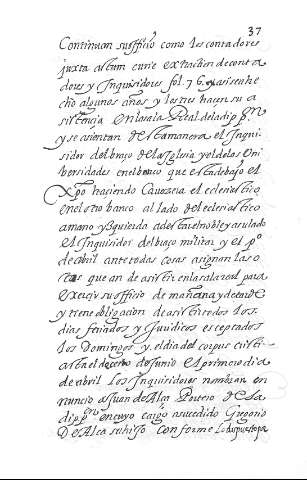 37
Continuan su officio como los contadores
juxta actum curie extraction de conta
dores y Inquisidores fol. 76. y assi se ha
hecho algunos años y los tres hacen su a
sistencia en la sala Real de la dip.on
y se asientan de esta manera el Inqui
sidor del braço de la Iglesia y el de las Uni
versidades en el banco que está debajo el
Xpo haciendo Caveçera el eclesiastico
en el otro banco al lado del eclesiastico
a mano ysquierda a de estar el noble y a su lado
el Inquisidor del braço militar y el p.o
de abril ante todas cosas asignan las o
ras que an de asistir en la sala real para
exercir su officio de mañana y de tarde
y tienen obligacion de asistir todos los
dias feriados y Juridicos exceptados
los Domingos y el dia del corpus
de Junio el primero dia
de abril los Inquisidores nombran en
nuncio a Juan de Alca Portero de la
dip.on en cuyo cargo a sucedido Gregorio
De Alca su hijo conforme lo dispuesto